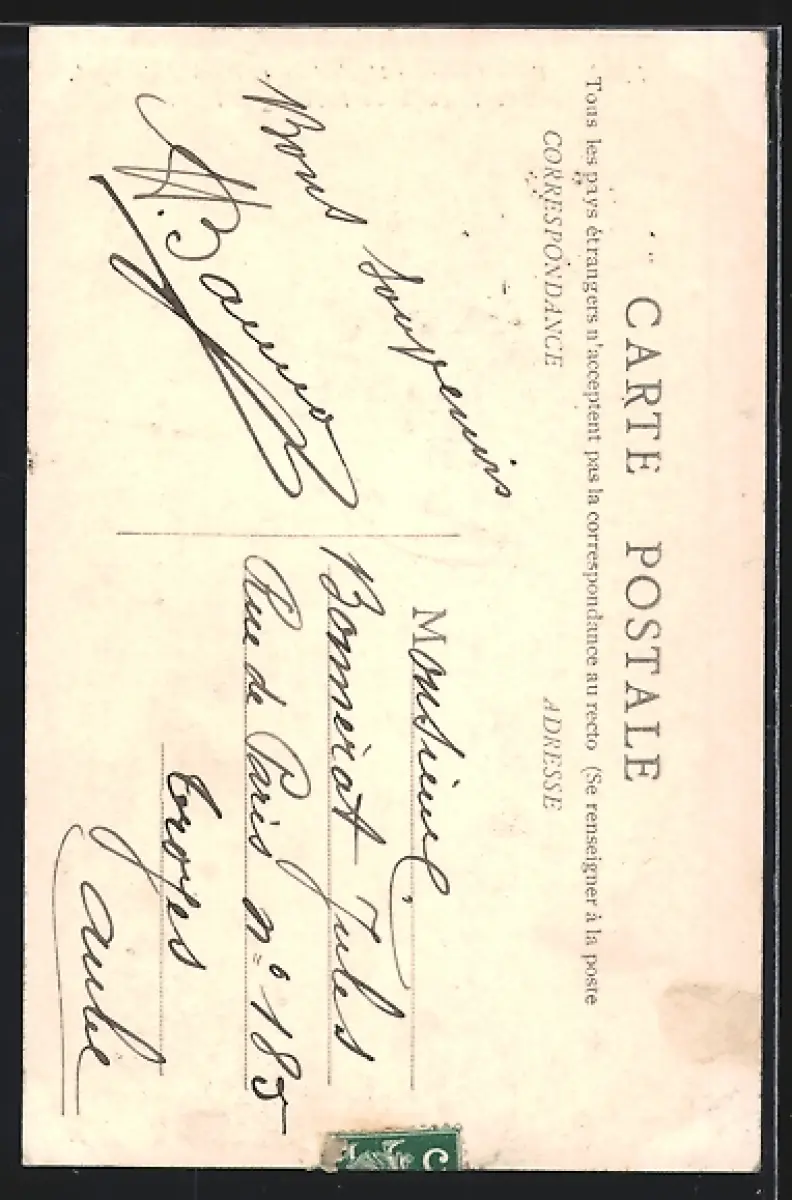 CARTE POSTALE
Tous les pays étrangers n'acceptent pas la correspondance au recto (Se renseigner à la poste
CORRESPONDANCE
Bons Souvenirs
ADRESSE
Monsieur
Jules
Rue de Paris n° 185
Troyes
Aube